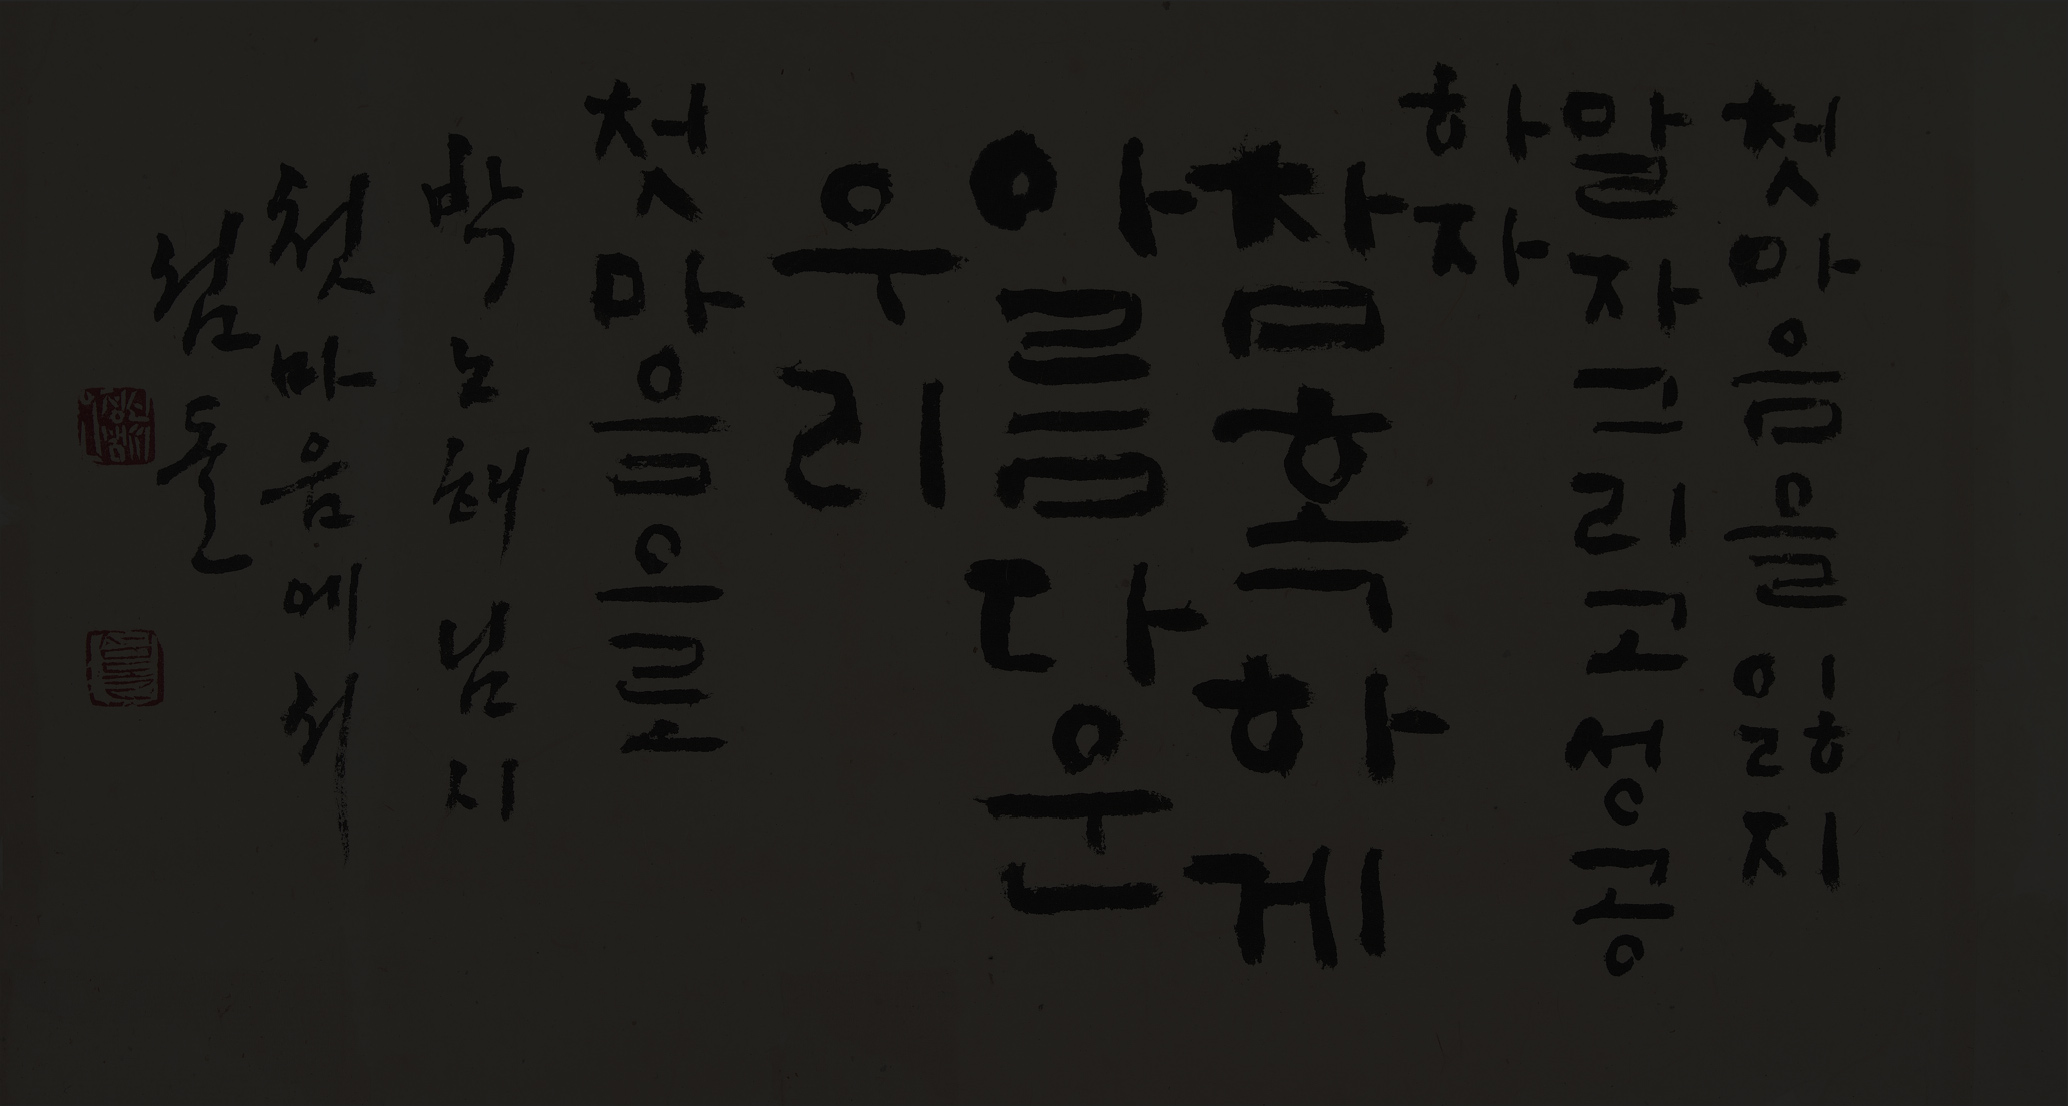 첫마음을 잃지
말자 그리고 성공
하자
참혹하게
아름다운
우리
첫마음으로
박노해님 시
첫마음에서
섬돌